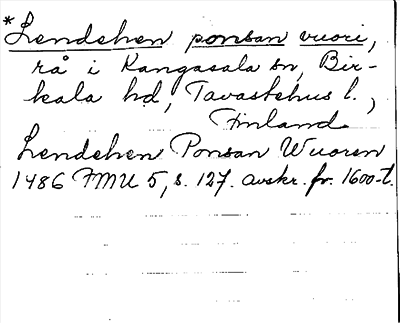 *Lendehen ponsan vuori,
rå i Kangasala sn, Bir-
kala hd, Tavastehus l.,
Finland
Lendehen Ponsan Wuoren
1486 FMU 5, s. 127. avskr. fr. 1600-t.